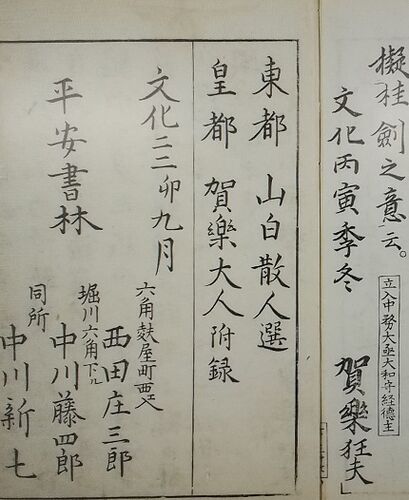 擬桂劍之意云。
文化丙寅季冬
賀樂狂夫」
立入中務大丞大和守経德主
東都 山白散人選
皇都 賀樂大人附録
文化二二卯九月
平安書林
六角麩屋町西入
西田庄三郎
堀川六角下ル
中川藤四郎
同所
中川新七